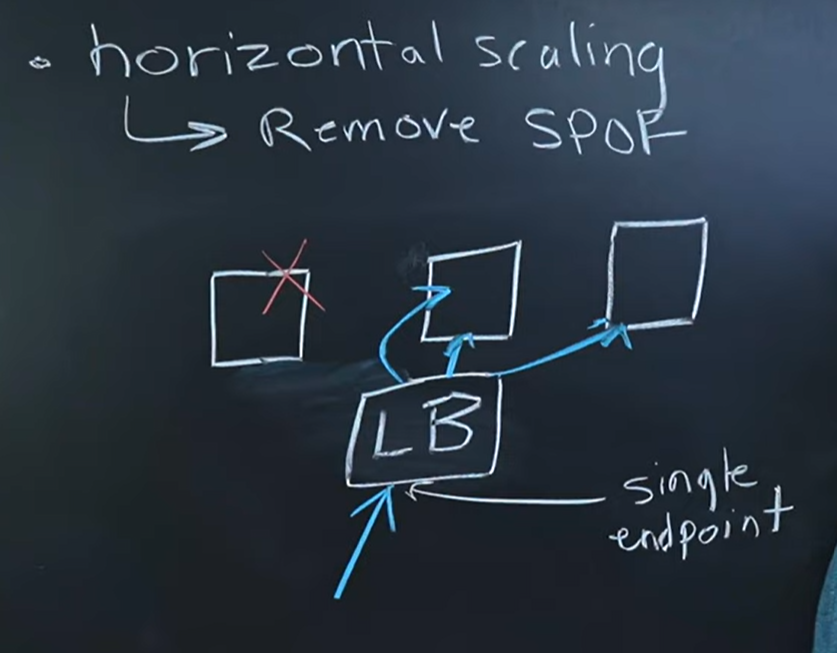 • horizontal scaling
↳ Remove SPOF
LB
single
endpoint